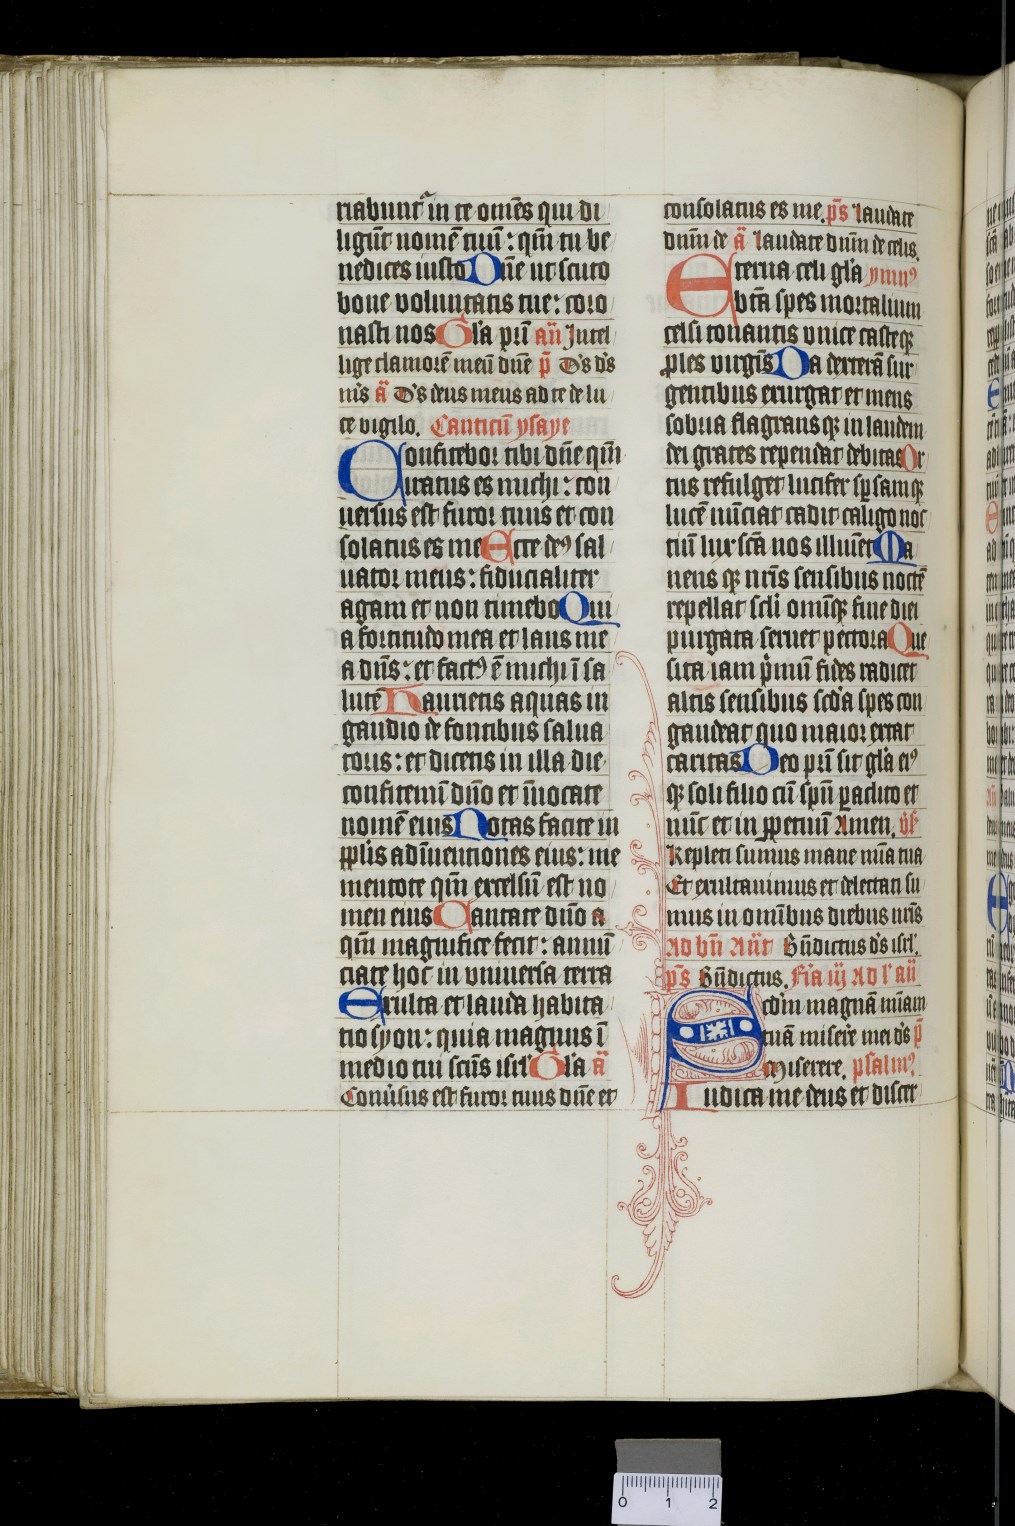 riabunt᷑ in te om̄es qui di
ligūt nomē tuū : qm̄ tu be
nedices iusto Dn̄e ut scuto
bone voluntatis tue : coro
nasti nos Gl'a pr̄i an̄ Intel
lige clamorē meū dn̄e p̄ D's d's
m's ā D's deus meus ad te de lu
ce vigilo. Canticū ysaye
Confitebor tibi dn̄e qm̄
iratus es michi : con
uersus est furor tuus et con
solatus es me Ecce deꝰ sal
uator meus : fiducialiter
agam et non timebo Qui
a fortitudo mea et laus me
a dn̄s : et factꝰ ē michi ī sa
lutē Haurietis aquas in
gaudio de fontibus salua
toris : et dicetis in illa die
confitemī dn̄o et īuocate
nomē eius Notas facite in
ppl̄is adīuentiones eius : me
mentote qm̄ excelsū est no
men eius Cantate dn̄o a
qm̄ magnifice fecit : annū
ciate hoc in vniuersa terra
Exulta et lauda habita
tio syon : quia magnus ī
medio tui scūs isrl' Gl'a ā
Conūsus est furor tuus dn̄e et
consolatus es me. p̄s laudate
dnm̄ de ā laudate dnm̄ de celis.
Eterna celi gl'a ymnꝰ
btā spes mortalium
celsi tonantis vnice casteqꝫ
ꝓles virgīs Da dexterā sur
gentibus exurgat et mens
sobria flagrans qꝫ in laudem
dei grates rependat debitas Or
tus refulget lucifer sꝑsamqꝫ
lucē nūciat cadit caligo noc
tiū lux scā nos illumīet Ma
nens qꝫ nr̄is sensibus noctē
repellat scl̄i omīqꝫ fine diei
purgata seruet pectora Que
sita iam p̄mū fides radicet
altis sensibus scd'a spes con
gaudeat quo maior extat
caritas Deo pr̄i sit gl'a eiꝰ
qꝫ soli filio cū spū ꝑaclito et
nūc et in ꝑpetuū Amen. v̄s
Repleti sumus mane mīa tua
Et exultauimus et delectati su
mus in omībus diebus nr̄is
Ad bn̄ Aūt Bn̄dictus d's isrl'.
p̄s Bn̄dictus. Fīa iij Ad l' an̄
Scd'm magnā mīam
tuā miserˀe mei d's p̄
Miserere. psalmꝰ
Iudica me deus et discer